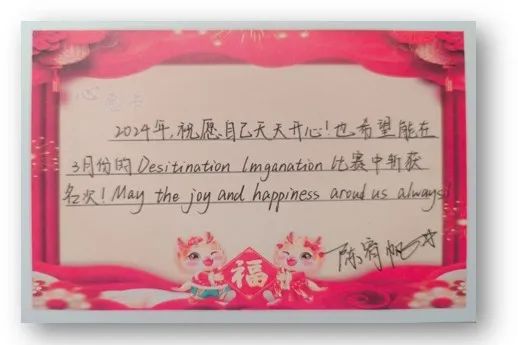 心愿卡
2024年,祝愿自己天天开心!也希望能在
3月份的Desitination Imganation比赛中斩获
名次!May the joy and happiness aroud us always!
福